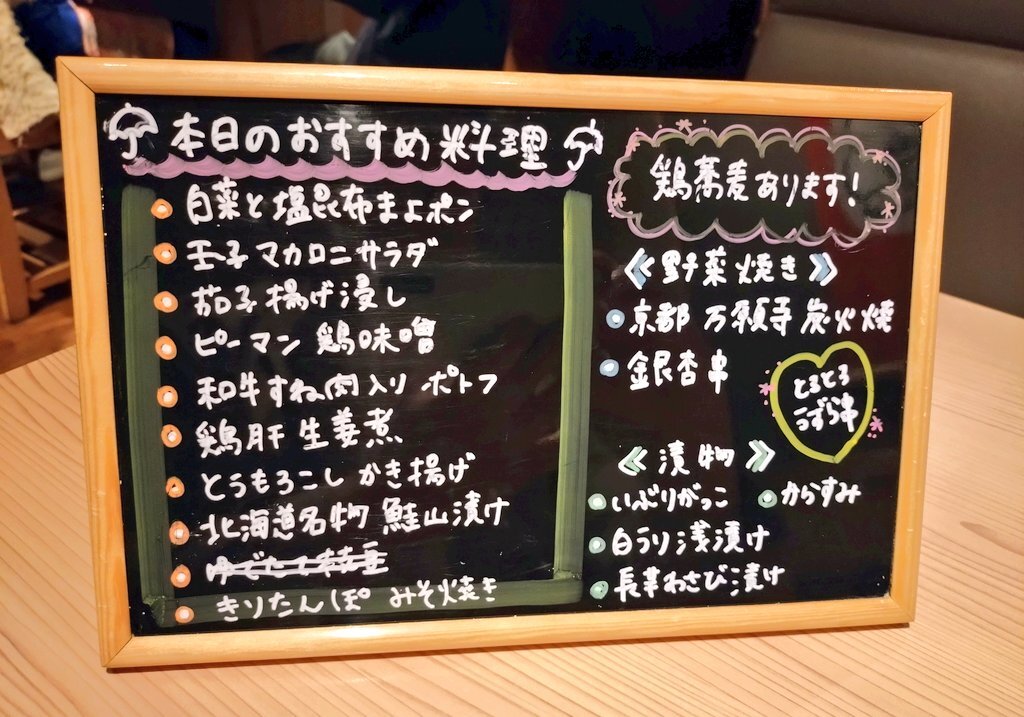 本日のおすすめ料理
白菜と塩昆布まよポン
玉子マカロニサラダ
茄子揚げ浸し
ピーマン 鶏味噌
和牛すね肉入り ポトフ
鶏肝 生姜煮
とうもろこし かき揚げ
北海道名物 鮭山漬け
ゆでたて枝豆
きりたんぽ みそ焼き
鶏蕎麦あります!
《野菜焼き》
京都 万願寺 炭火焼
銀杏串
とろとろ
うずら串
《漬物》
いぶりがっこ
からすみ
白うり浅漬け
長芋わさび漬け